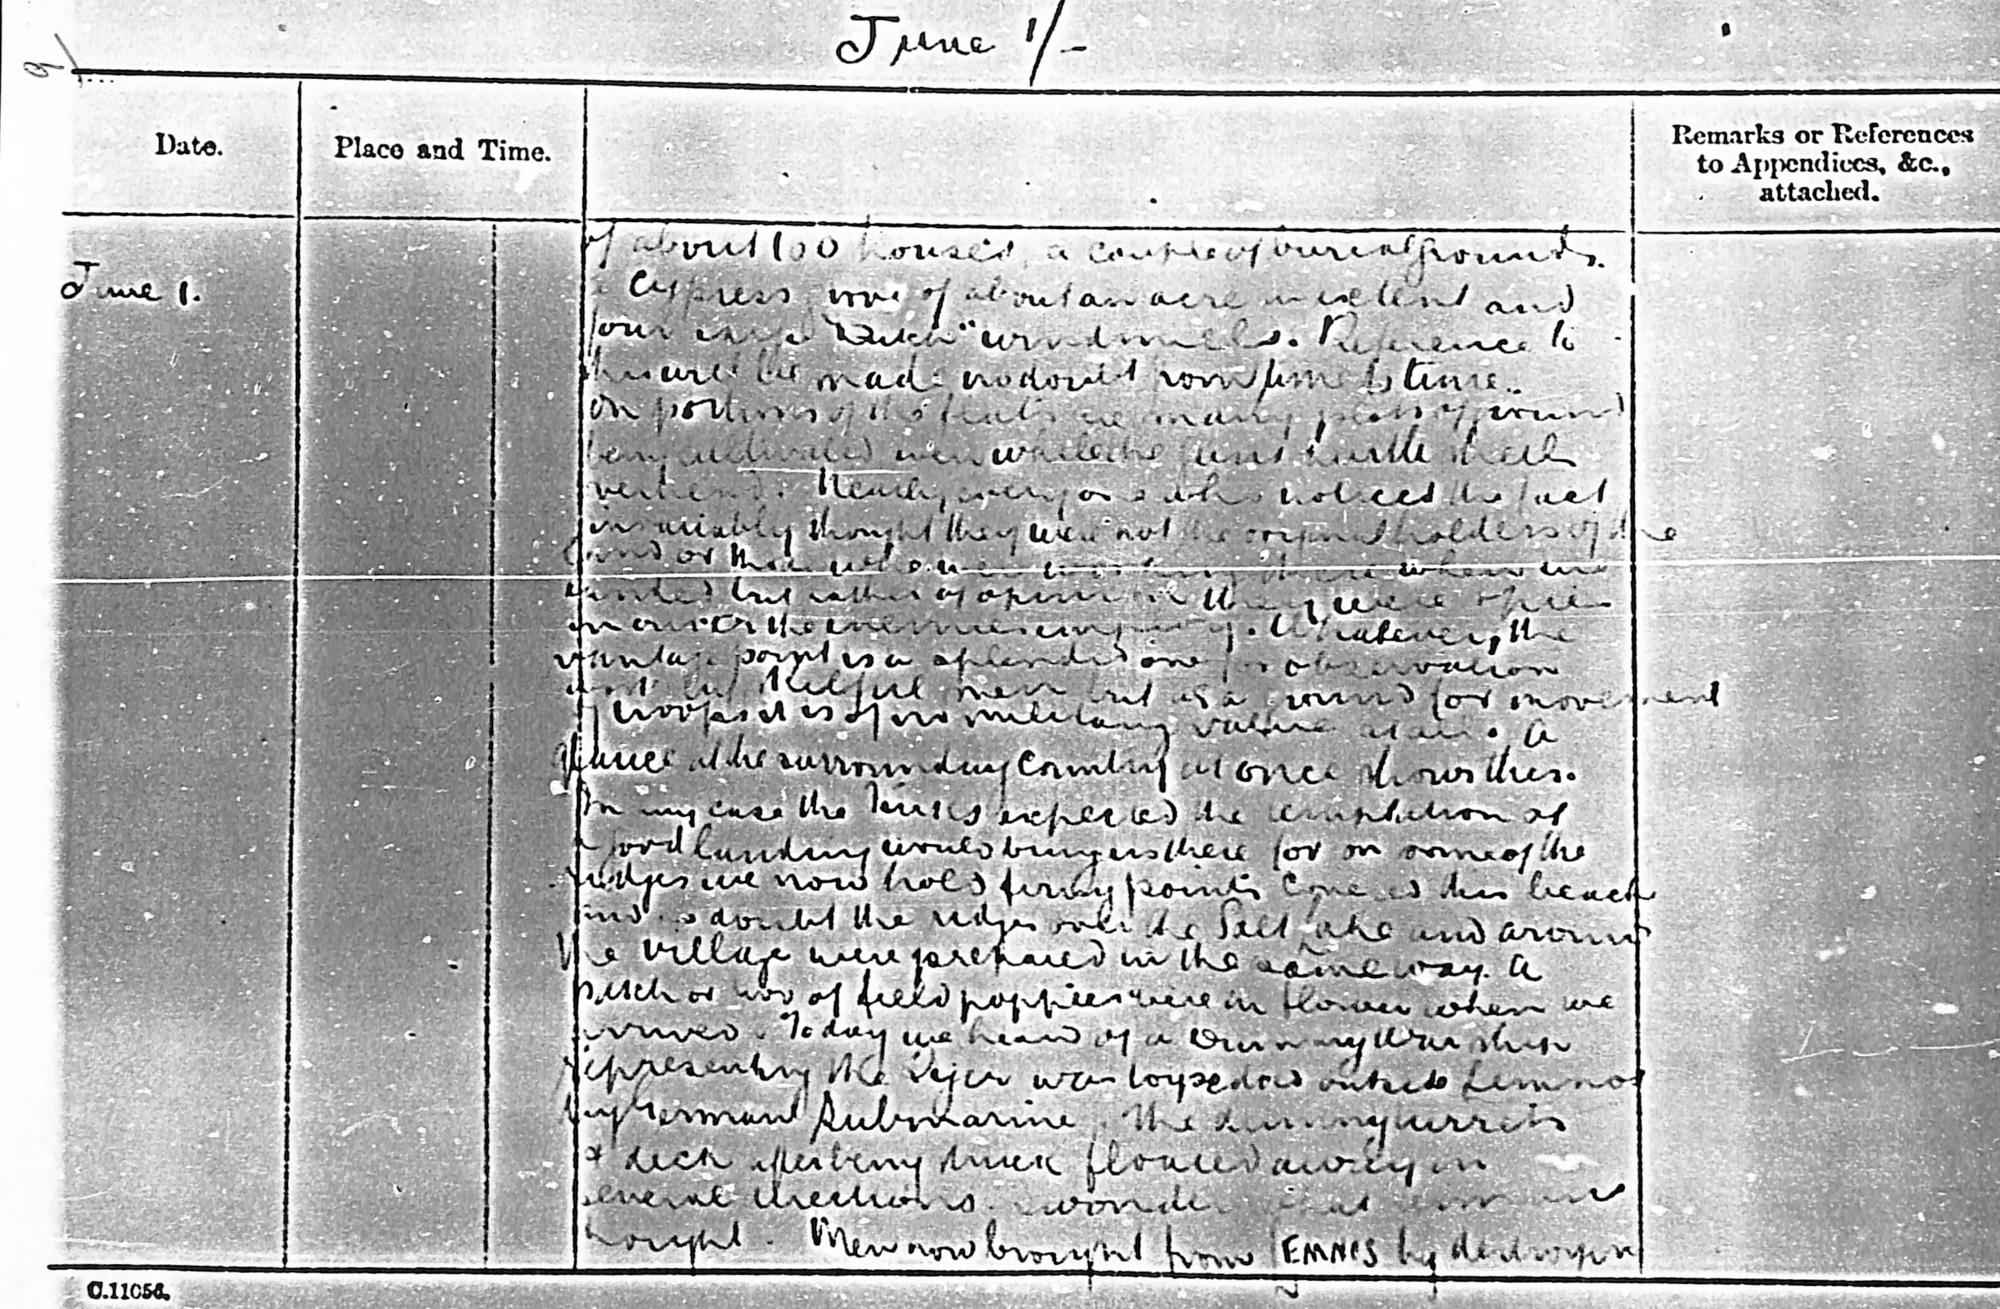 June 1/-
9/
Date.
Place and Time.
Remarks or References
to Appendices, &c.,
attached.
June 1.
of about 100 houses, a couple of burial grounds.
a Cypress grove of about an acre in extent and
four large "Dutch" windmills. Reference to
this will be made no doubt from time to time.
On portions of the flats are many plots of ground
being cultivated even while the guns hurtle shells
overhead. Nearly everyone who notices the fact
invariably thought they were not the original holders of the
land or those who were working there when we
landed but rather of opinion they were spies
in the enemies employ. Whatever, the
vantage point is a splendid one for observation
work by skilful men but as a ground for movement
of troops it is of no military value at all. A
glance at the surrounding country at once shows this.
In any case the Turks expected the temptation of
a good landing would bring us there for on some of the
ridges we now hold firing points covered this beach
and no doubt the ridges over the Salt Lake and around
the village were prepared in the same way. A
patch or two of field poppies were in flower when we
arrived. Today we heard of a Dummy Warship
representing the Tiger was torpedoed outside Lemnos
by German Submarine. The dummy turrets
& deck after being struck floated away in
several directions. wonder what
thought. Men now brought from LEMNOS by destroyer
C.11056.